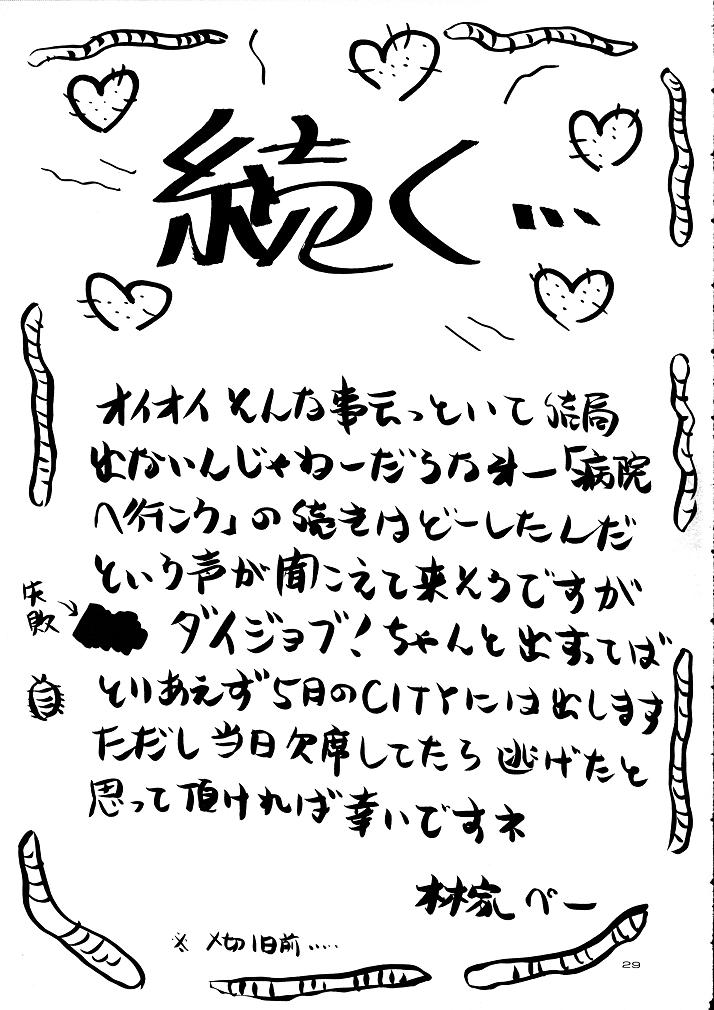 続く…
オイオイ そんな事云っといて 結局
出ないんじゃねーだろうなオー「病院
へ行こう」の続きはどーしたんだ
という声が聞こえて来そうですが
失敗
ダイジョブ!ちゃんと出すってば
とりあえず5月のCITYには出します
ただし当日欠席してたら逃げたと
思って頂ければ幸いですネ
林家ペー
※〆切1日前……
29